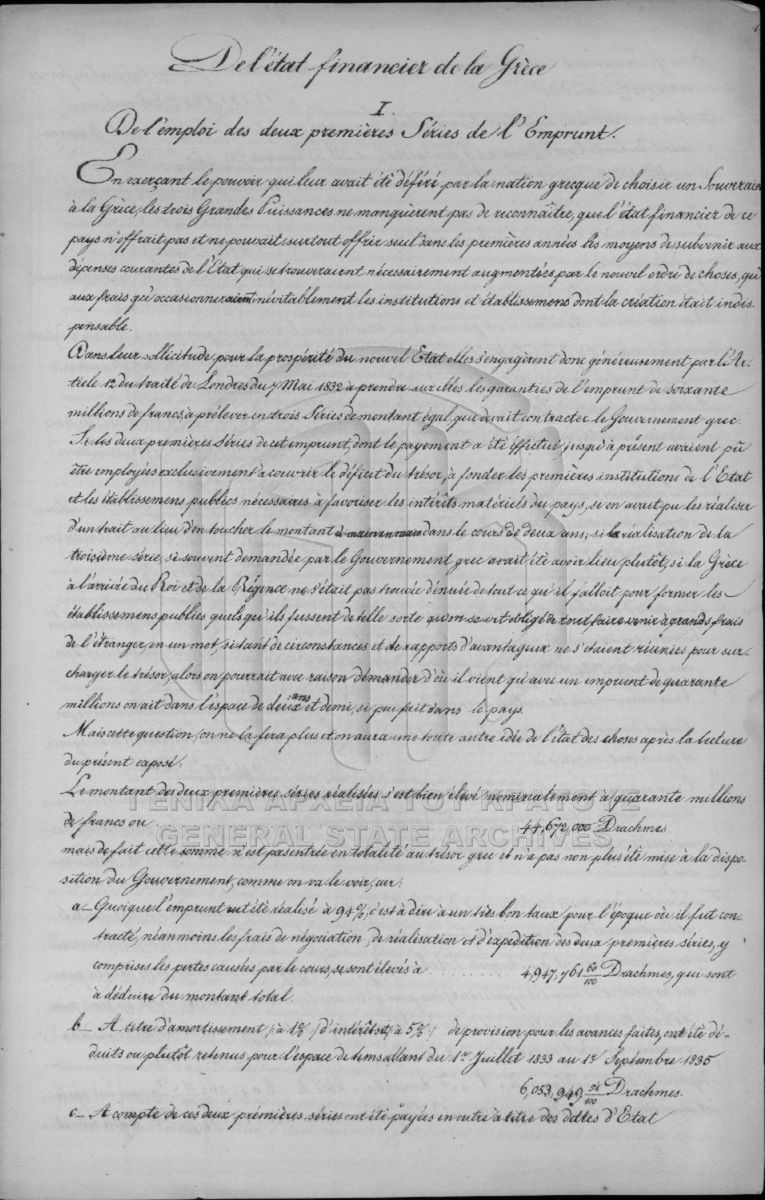 De l'état financier de la Grèce
I.
De l'emploi des deux premières Séries de l'Emprunt.
En exerçant le pouvoir qui leur avait été déféré par la nation grecque de choisir un Souverain
à la Grèce, les trois Grandes Puissances ne manquèrent pas de reconnaître, que l'état financier de ce
pays n'offrait pas et ne pouvait surtout offrir seul dans les premières années les moyens de subvenir aux
dépenses courantes de l'Etat qui se trouveraient nécessairement augmentées par le nouvel ordre de choses, qu'
aux frais qu'occasionneraient inévitablement les institutions et établissemens dont la création était indis
pensable.
Dans leur sollicitude pour la prospérité du nouvel Etat elles s'engagèrent donc généreusement par l'Ar-
ticle 12 du traité de Londres du 7 Mai 1832 à prendre sur elles les garanties de l'emprunt de soixante
millions de francs, à prélever en trois Séries de montant égal, que devait contracter le Gouvernement grec.
Si les deux premières Séries de cet emprunt, dont le payement a été effectué jusqu'à présent avaient pû
être employées exclusivement à couvrir le déficit du trésor, à fonder les premières institutions de l'Etat
et les établissemens publics nécessaires à favoriser les intérêts matériels du pays, si on avait pu les réaliser
d'un trait au lieu d'en toucher le montant dans le cours de deux ans, si la réalisation de la
troisième série, si souvent demandée par le Gouvernement grec avait été avoir lieu plutôt, si la Grèce
à l'arrivée du Roi et de la Régence ne s'était pas trouvée dénuée de tout ce qu'il falloit pour former les
établissemens publics quels qu'ils fussent de telle sorte qu'on se vit obligé de tout faire venir à grands frais
de l'étranger, en un mot, si tant de circonstances et de rapports d'avantageux ne s'etaient réunies pour sur
charger le trésor, alors on pourrait avec raison demander d'où il vient qu'avec un emprunt de quarante
millions on ait dans l'espace de deux ans et demi, si peu fait dans le pays.
Mais cette question, on ne la fera plus et on aura une toute autre idée de l'état des choses après la lecture
du présent exposé.
Le montant des deux premières séries réalisées s'est bien élevé nominalement à quarante millions
de francs ou 44,672,000 Drachmes.
mais de fait cette somme n'est pas entrée en totalité au trésor grec et n'a pas non plus été mise à la dispo-
sition du Gouvernement, comme on va le voir, car:
a_ Quoique l'emprunt eut été réalisé à 94%, c'est à dire à un très bon taux pour l'époque où il fut con-
tracté, néanmoins les frais de négociation, de réalisation et d'expédition des deux premières séries, y
comprises les pertes causées par le cours, se sont élevés à . . . . . . . . 4,947,761 60/100 Drachmes, qui sont
à déduire du montant total.
b_ A titre d'amortissement /: à 1% :/ d'intérêts et /: à 5% :/ de provision pour les avances faites, ont été dé-
duits ou plutôt retenus pour l'espace de tems allant du 1er Juillet 1833 au 1er Septembre 1835
6,053,949 54/100 Drachmes.
c_ A compte de ces deux premières séries ont été payées en outre à titre des dettes d'Etat
ΓΕΝΙΚΑ ΑΡΧΕΙΑ ΤΟΥ ΚΡΑΤΟΥΣ
GENERAL STATE ARCHIVES